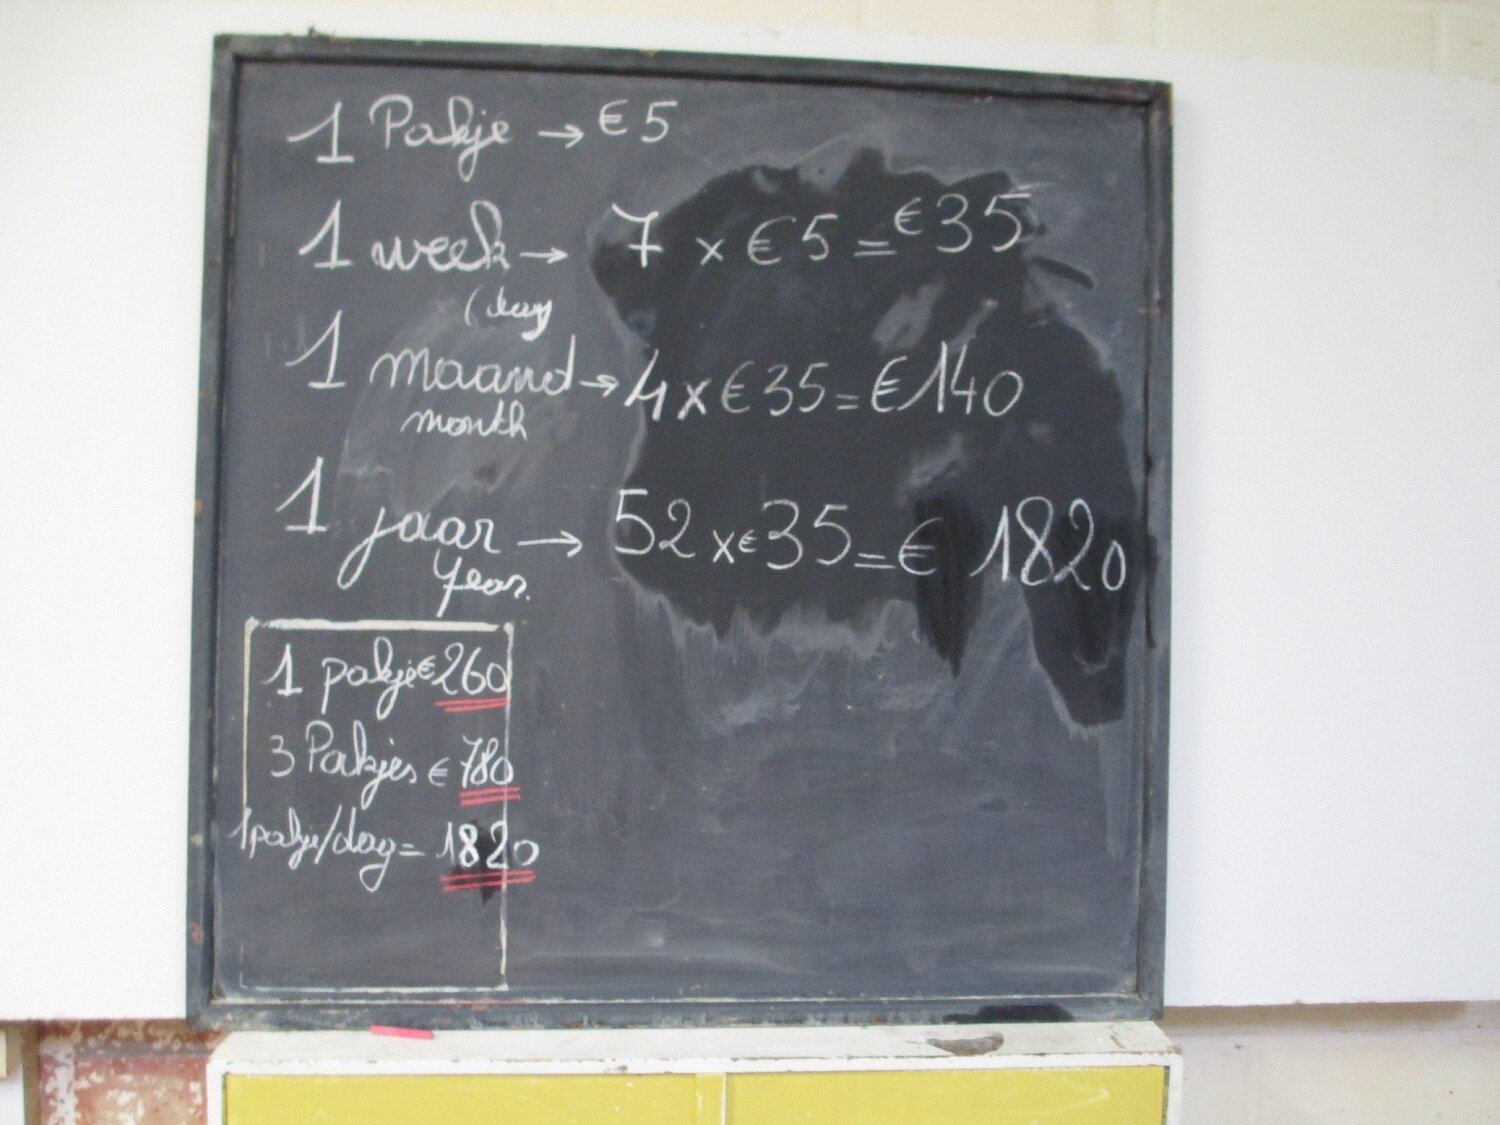 1 Pakje → €5
1 week → 7 x €5 = €35
(day
1 maand → 4 x €35 = €140
month
1 jaar → 52 x €35 = € 1820
Year.
1 pakje €260
3 Pakjes € 780
1 pakje/dag = 1820